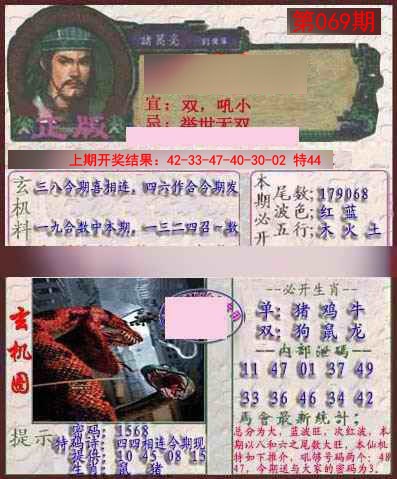 第069期
諸葛亮
正版
宜：双，吼小
忌：举世无双
上期开奖结果：42-33-47-40-30-02 特44
玄机料
三八今期喜相连，四六作合今期发
一九合数中本期，一三二四召一数
本期必开
尾数：179068
波色：红 蓝
五行：木 火 土
玄机图
必开生肖
单：猪 鸡 牛
双：狗 鼠 龙
内部泄码
11 47 01 37 49
33 36 46 34 42
馬會最新統計：
总分为大，蓝波旺，次红波，本
期以八和六之尾数大旺，本仙机
特如下推介，吼够号码两个：48
47，今期送与大家的密码为3。
提示
密码：1568
特码诗：四四相连今期现
提供：10 45 08 15
生肖：鼠 猪